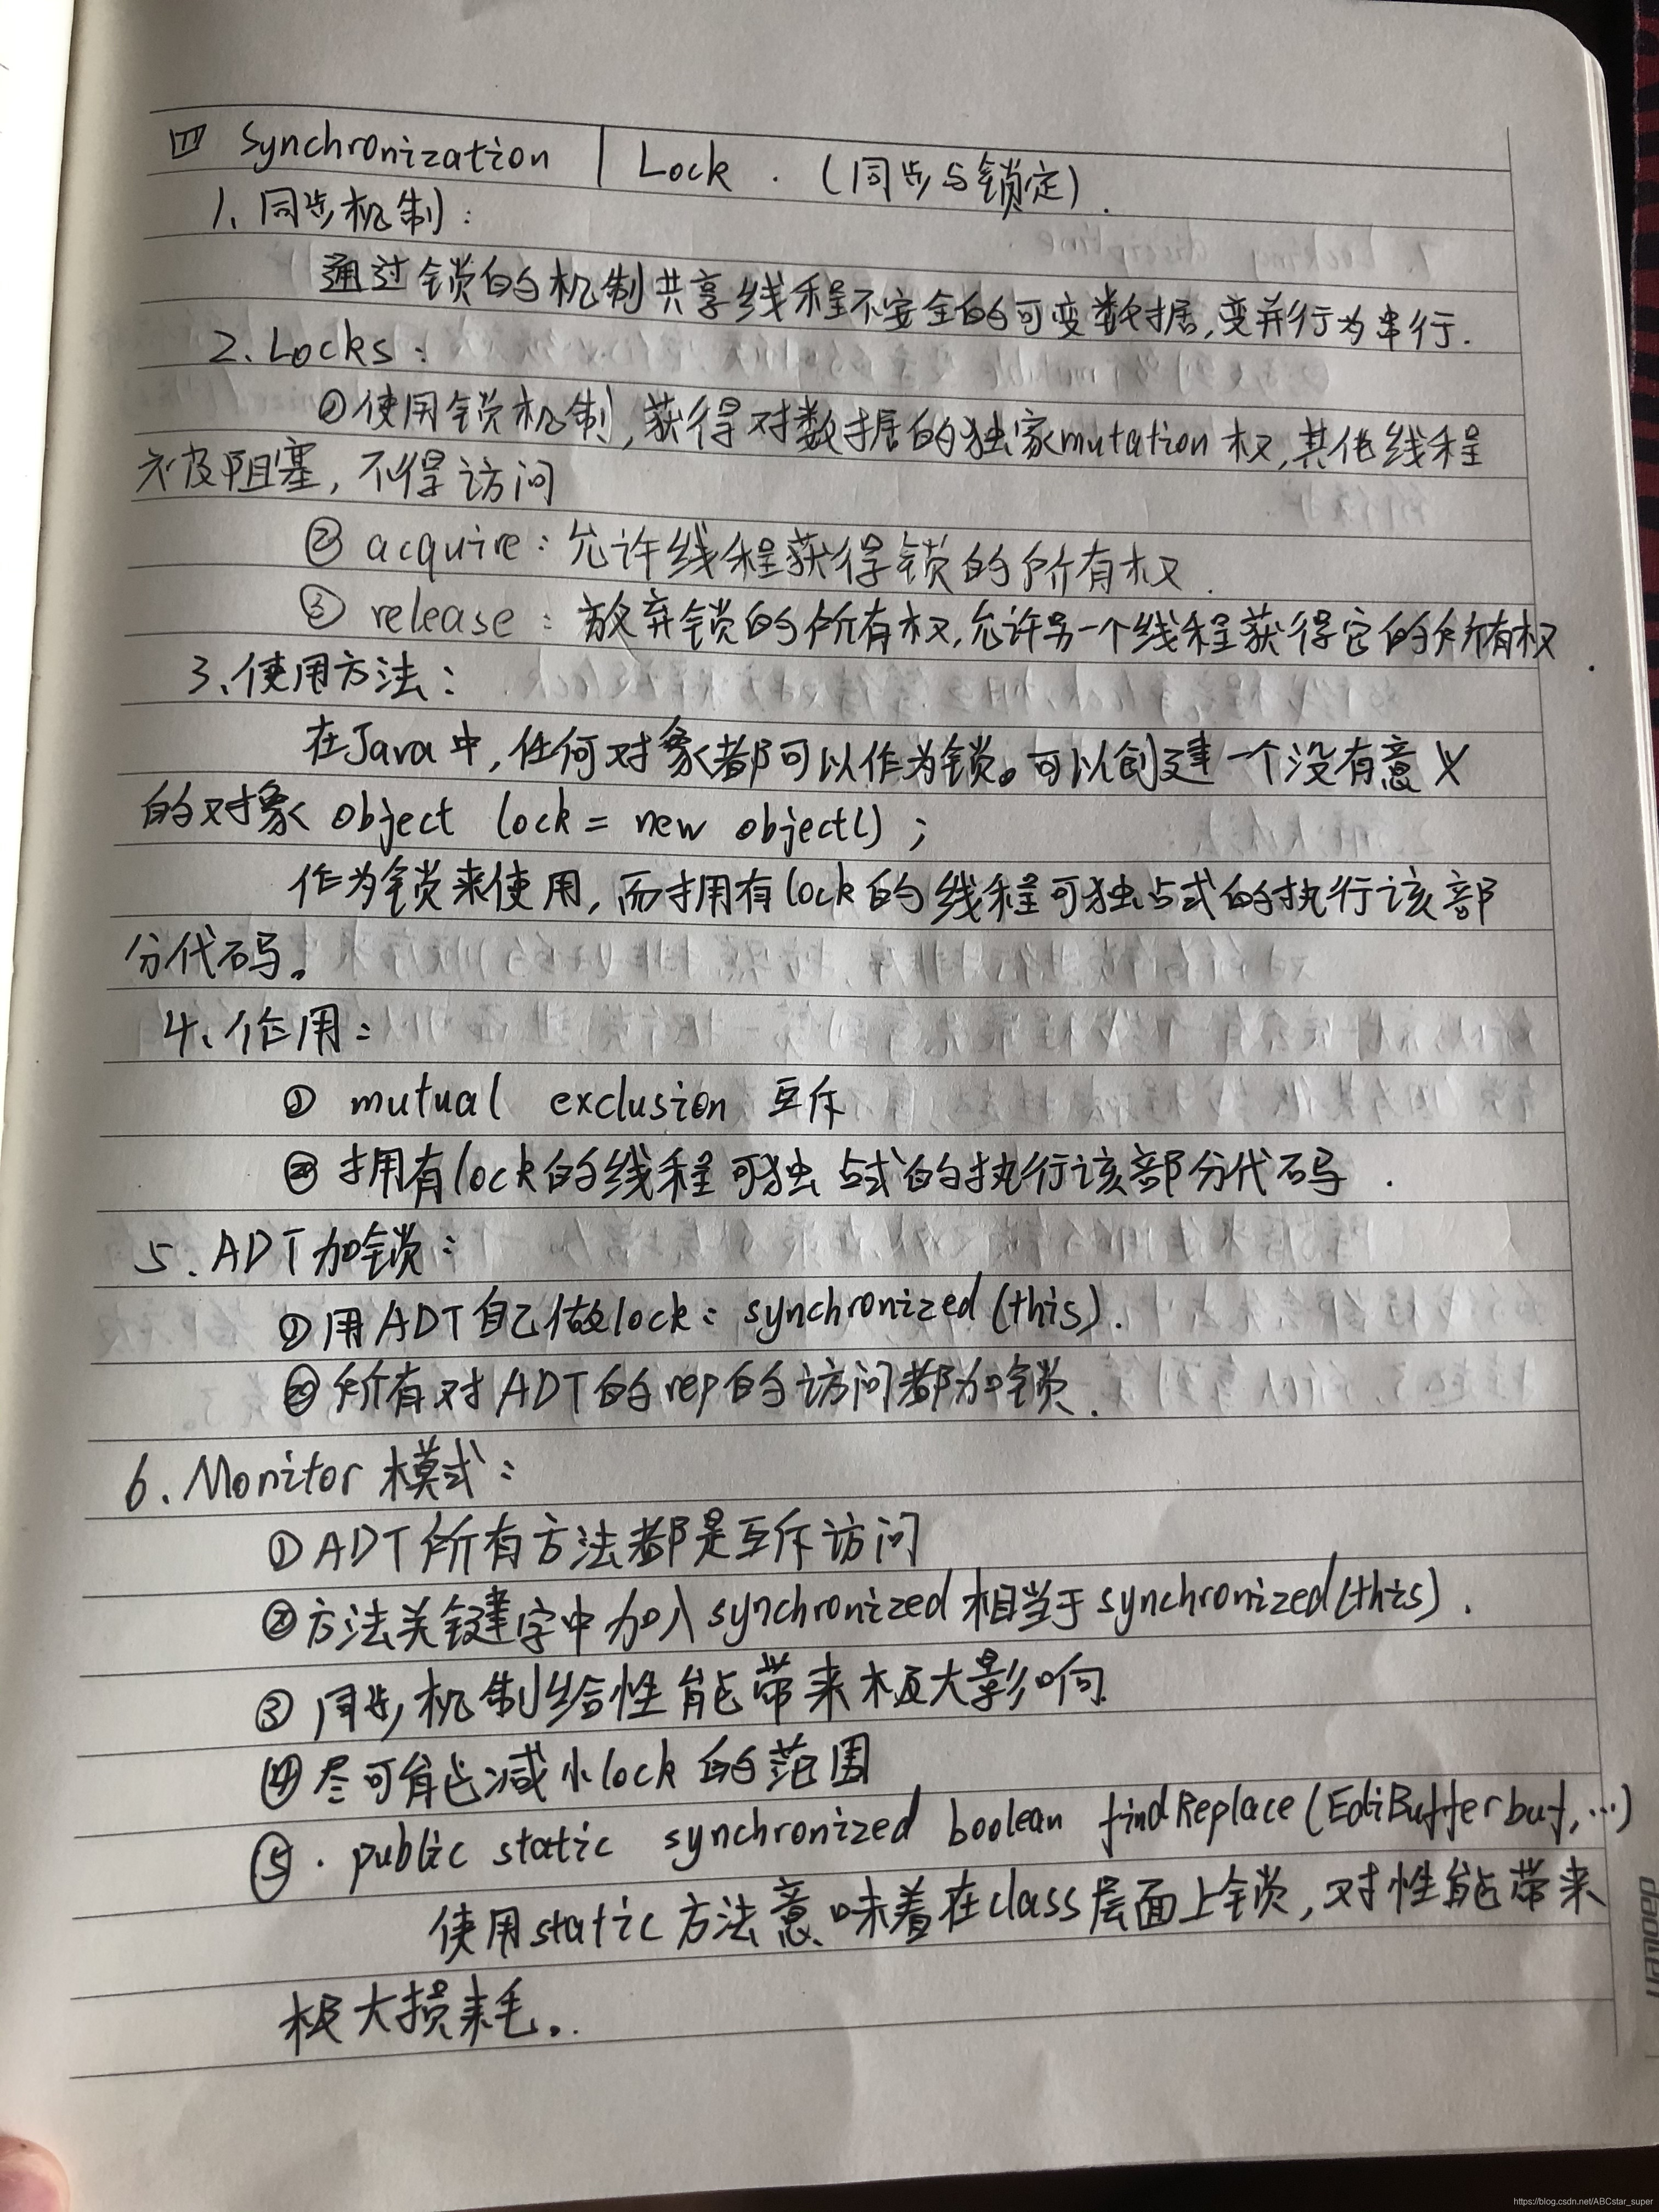 四 Synchronization | Lock . (同步与锁定).
1、同步机制:
通过锁的机制共享线程不安全的可变数据,变并行为串行.
2. Locks:
①使用锁机制,获得对数据的独家mutation权,其他线程
被阻塞,不得访问
② acquire: 允许线程获得锁的所有权.
③ release: 放弃锁的所有权,允许另一个线程获得它的所有权.
3、使用方法:
在Java中,任何对象都可以作为锁。可以创建一个没有意义
的对象 Object lock = new object();
作为锁来使用,而拥有lock的线程可独占式的执行该部
分代码。
4、作用:
① mutual exclusion 互斥
② 拥有lock的线程可独占式的执行该部分代码.
5. ADT加锁:
①用ADT自己做lock: synchronized(this).
②所有对ADT的rep的访问都加锁.
6. Monitor 模式:
①ADT所有方法都是互斥访问
②方法关键字中加入synchronized相当于synchronized(this).
③同步机制给性能带来极大影响.
④尽可能减小lock的范围
⑤. public static synchronized boolean findReplace(EdiBuffer buf, ...)
使用static方法意味着在class层面上锁,对性能带来
极大损耗。
deli
https://blog.csdn.net/ABCstar_super